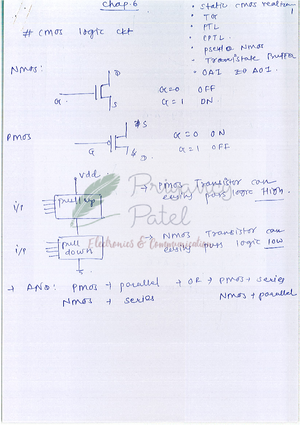 Chap. 6
• Static CMOS realtan
• TG
• PTL
• CPTL
• pseudo Nmos
- Transistate Buffer
• OAI & AOI.
1
# CMOS logic ckt
Nmos:
D
G
S
G=0 OFF
G=1 ON
PMOS
S
G
D
G=0 ON
G=1 OFF
Vdd
i/p
pull up
→ Pmos Transistor can
easily pass logic High.
Priyang
Patel
Electronics & Communication
i/p
pull
down
→ Nmos Transistor can
easily pass logic low
→ AND: Pmos → parallel
Nmos → series
→ OR → Pmos → series
Nmos → parallel